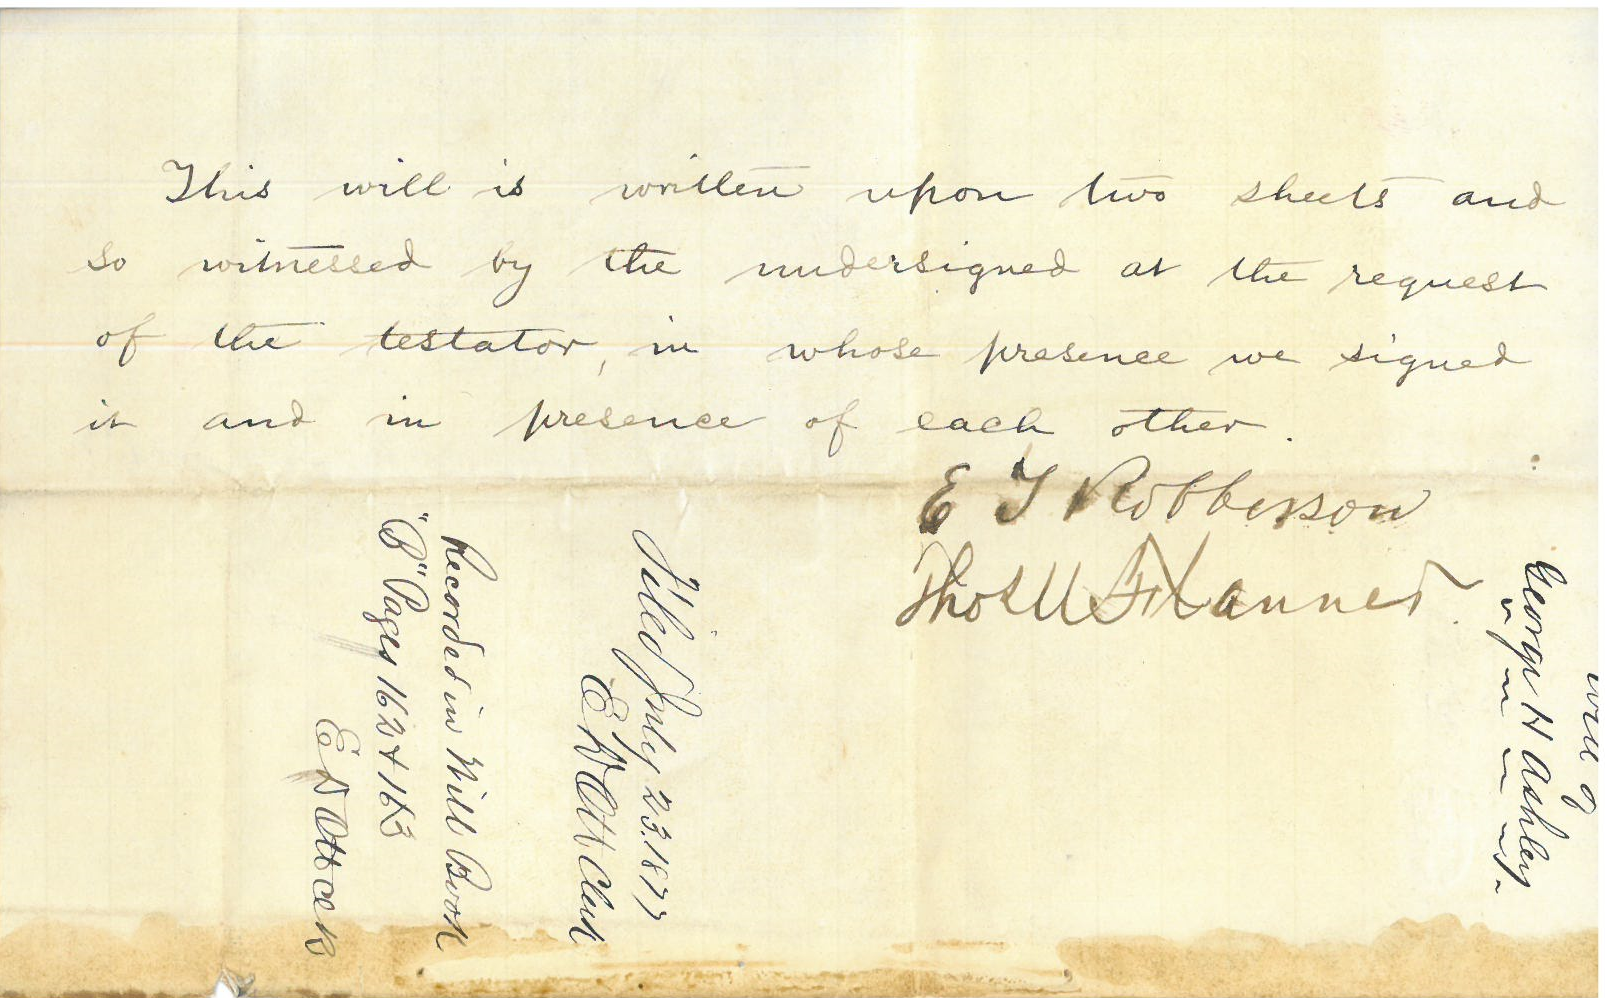 This will is written upon two sheets and
so witnessed by the undersigned at the request
of the testator, in whose presence we signed
it and in presence of each other.
E T Robberson
Thos U Flanner
will of
George H Ashley
Filed July 23. 1877
E D Ott Clerk
Recorded in Will Book
"B" Pages 162 & 163
E D Ott C C K